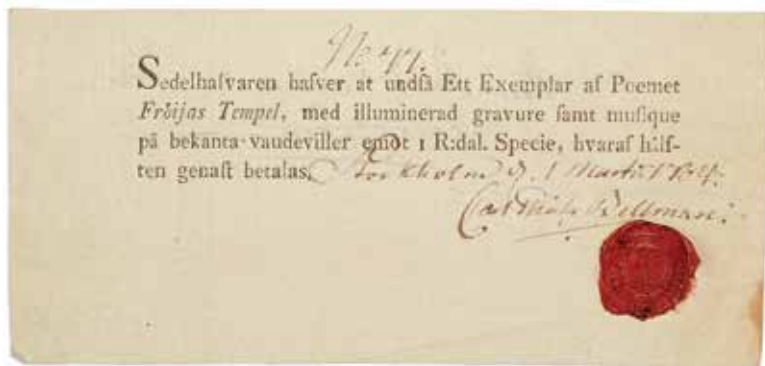 No 77.
Sedelhafvaren hafver at undfå Ett Exemplar af Poemet
Fröijas Tempel, med illuminerad gravure samt musique
på bekanta vaudeviller emot 1 R:dal. Specie, hvaraf hälf-
ten genast betalas. Stockholm d. 1 Martii
Carl Bellman.